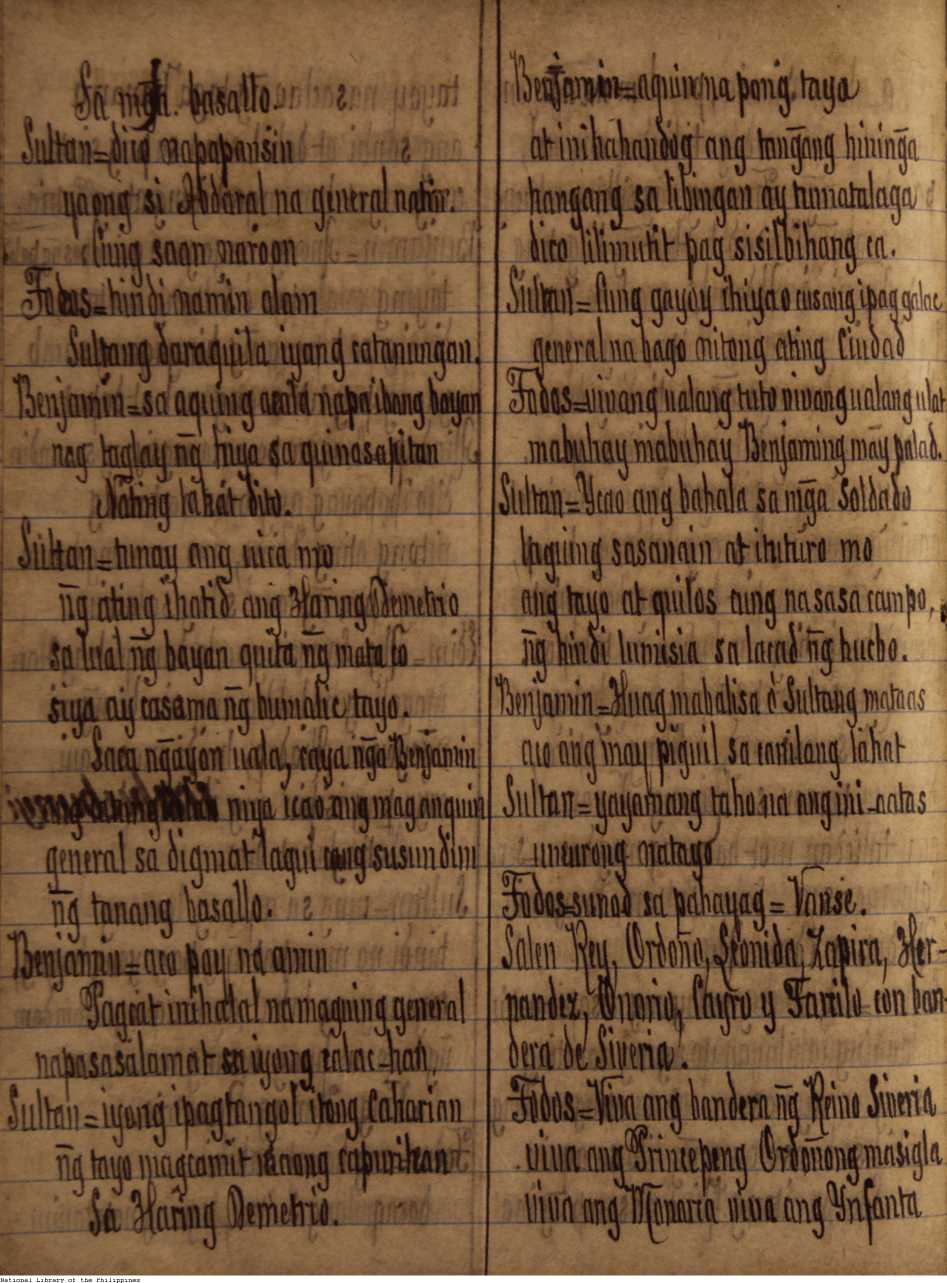 Sa mga basallo.
Sultan=dico napapansin
yaong si Abdaral na general natin.
Cung saan naroon
Todos=hindi namin alam
Sultang daraquila iyang catanungan.
Benjamin=sa aquing acala napa ibang bayan
nag taglay n͠g hiya sa quinasapitan
Nating lahat dito.
Sultan=tunay ang uica mo
n͠g ating ihatid ang Haring Demetrio
sa lual n͠g bayan quita n͠g mata co
siya ay casama n͠g bumalic tayo.
Saca n͠gayon uala, caya n͠ga Benjamin
niya icao ang mag anquin
general sa digmat lagui cang susundin
n͠g tanang basallo.
Benjamin=aco poy na amin
Pagcat inihalal na maguing general
napasasalamat sa iyong calac-han,
Sultan=iyong ipagtangol itong Caharian
n͠g tayo magcamit capurihan
Sa Haring Demetrio.
Benjamin=aquin na pong taya
at inihahandog ang tan͠gang hinin͠ga
hangang sa libingan ay tumatalaga
dico lilimutit pag sisilbihang ca.
Sultan=Cung gayoy ihiyao cusang ipag galac
general na bago nitong ating Ciudad
Todos=vivang ualang tuto vivang ualang ulat
mabuhay mabuhay Benjaming may palad.
Sultan=Ycao ang bahala sa m͠ga Soldado
laguing sasanain at ituturo mo
ang tayo at quilos cung nasasa campo,
n͠g hindi lumisia sa lacad n͠g hucbo.
Benjamin=Huag mabalisa ó Sultang mataas
aco ang may piguil sa canilang lahat
Sultan=yayamang taho na ang ini-aatas
umurong natayo
Todos=sunod sa pahayag=Vanse.
Salen Rey, Ordoño, Leonida, Zapira, Her-
nandez, Onorio, Cayro y Farilo con ban-
dera de Siveria.
Todos=Viva ang bandera n͠g Reino Siveria
viva ang Principeng Ordoñong masigla
viva ang Monarca viva ang Ynfanta
National Library of the Philippines